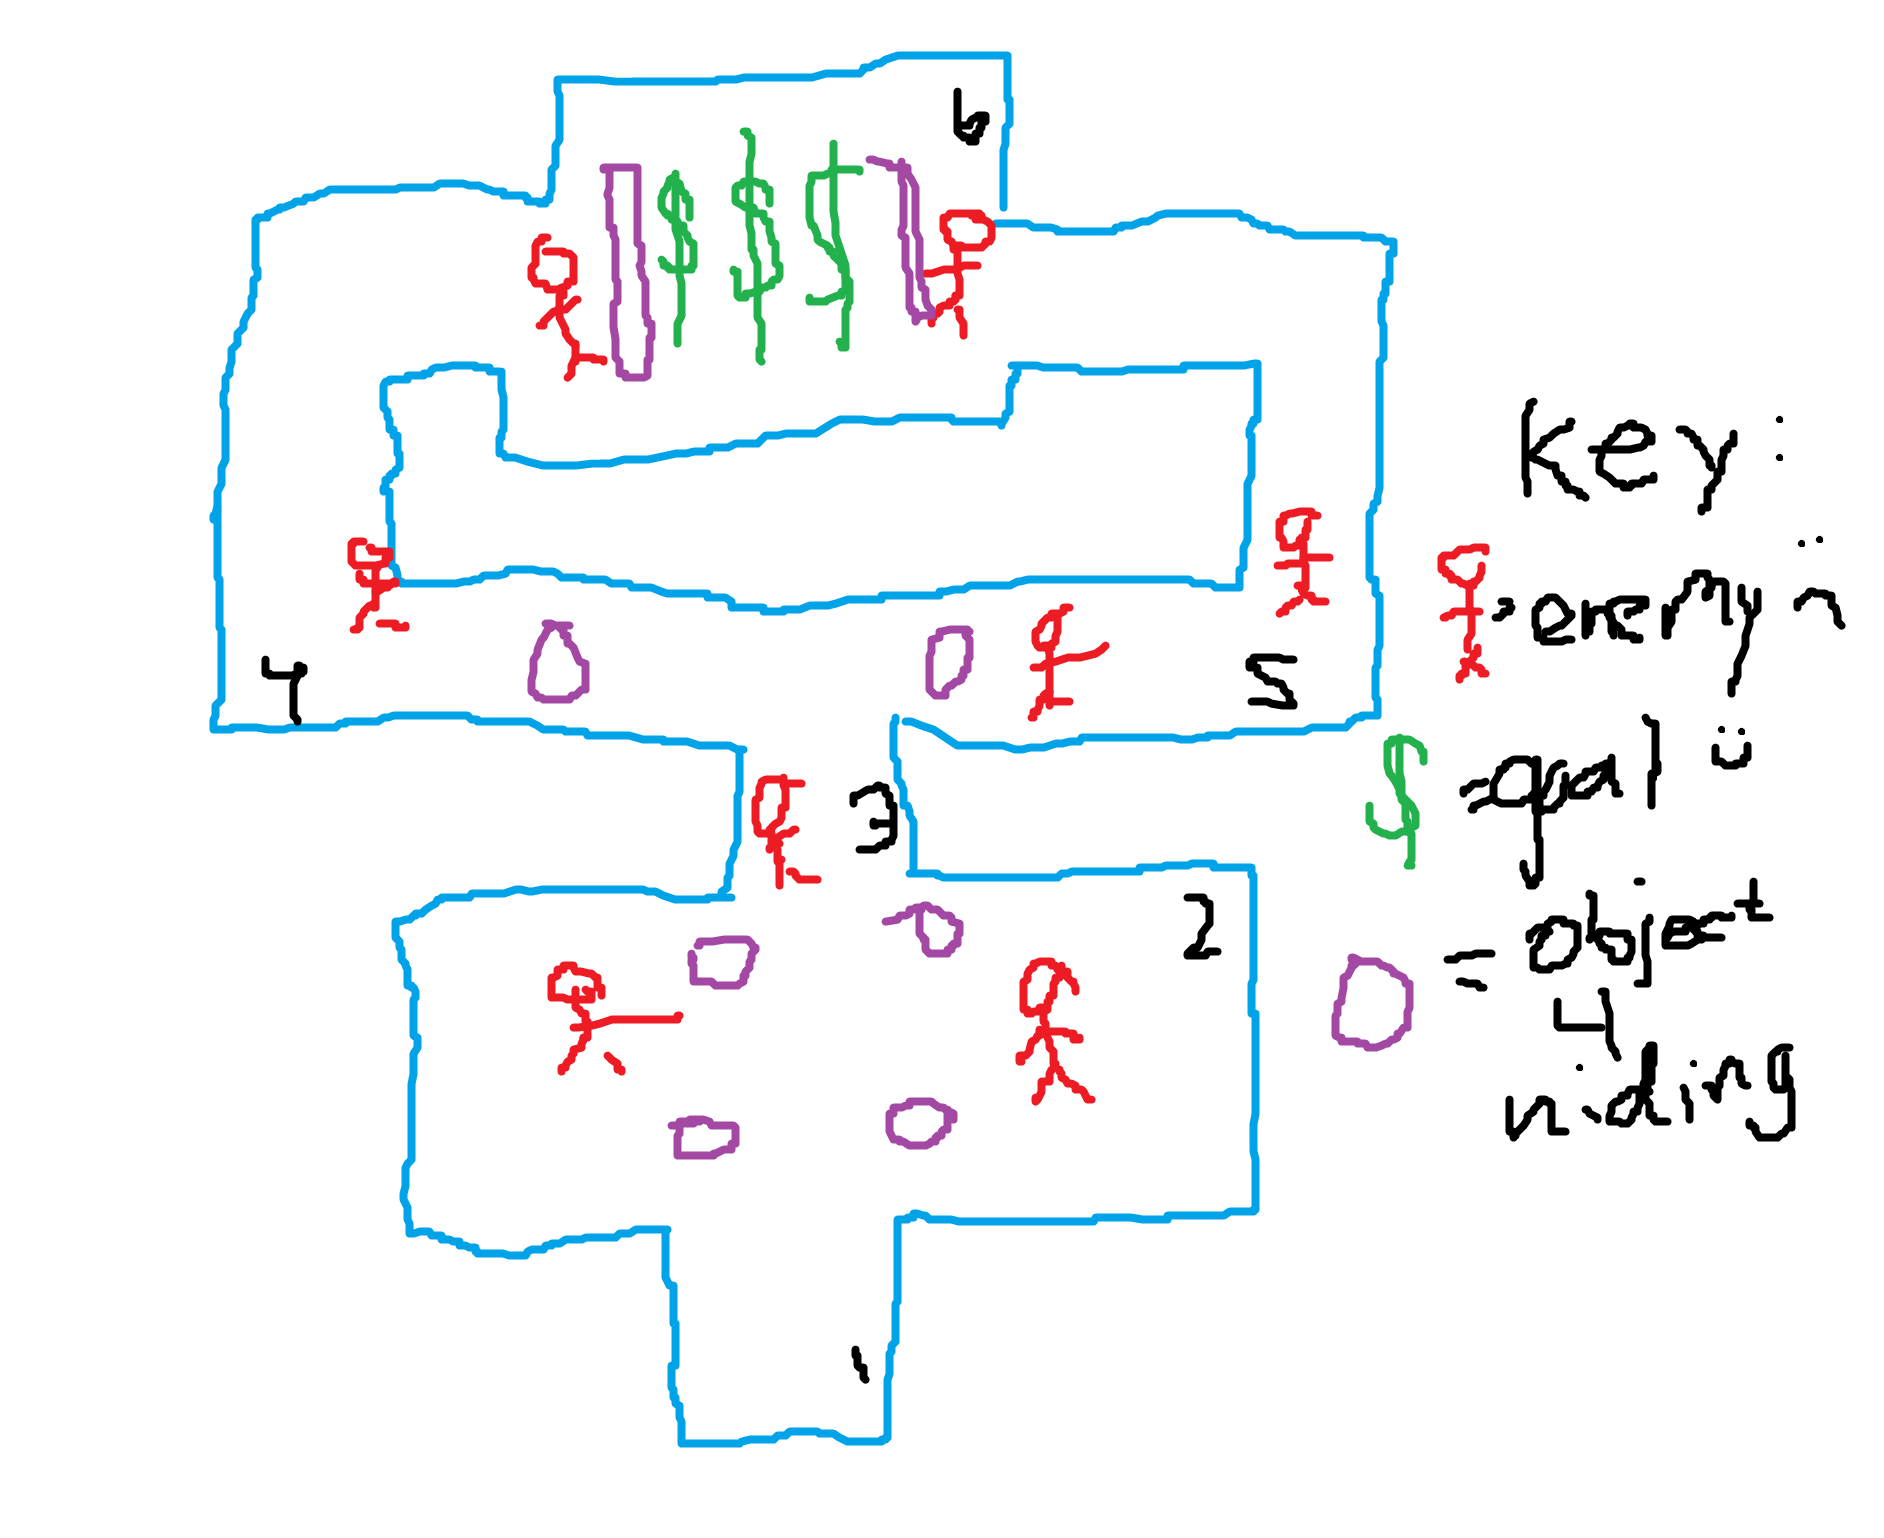 6
$ $ $
4
5
3
2
1
Key:
= enemy
$ = goal
= object
4
hiding